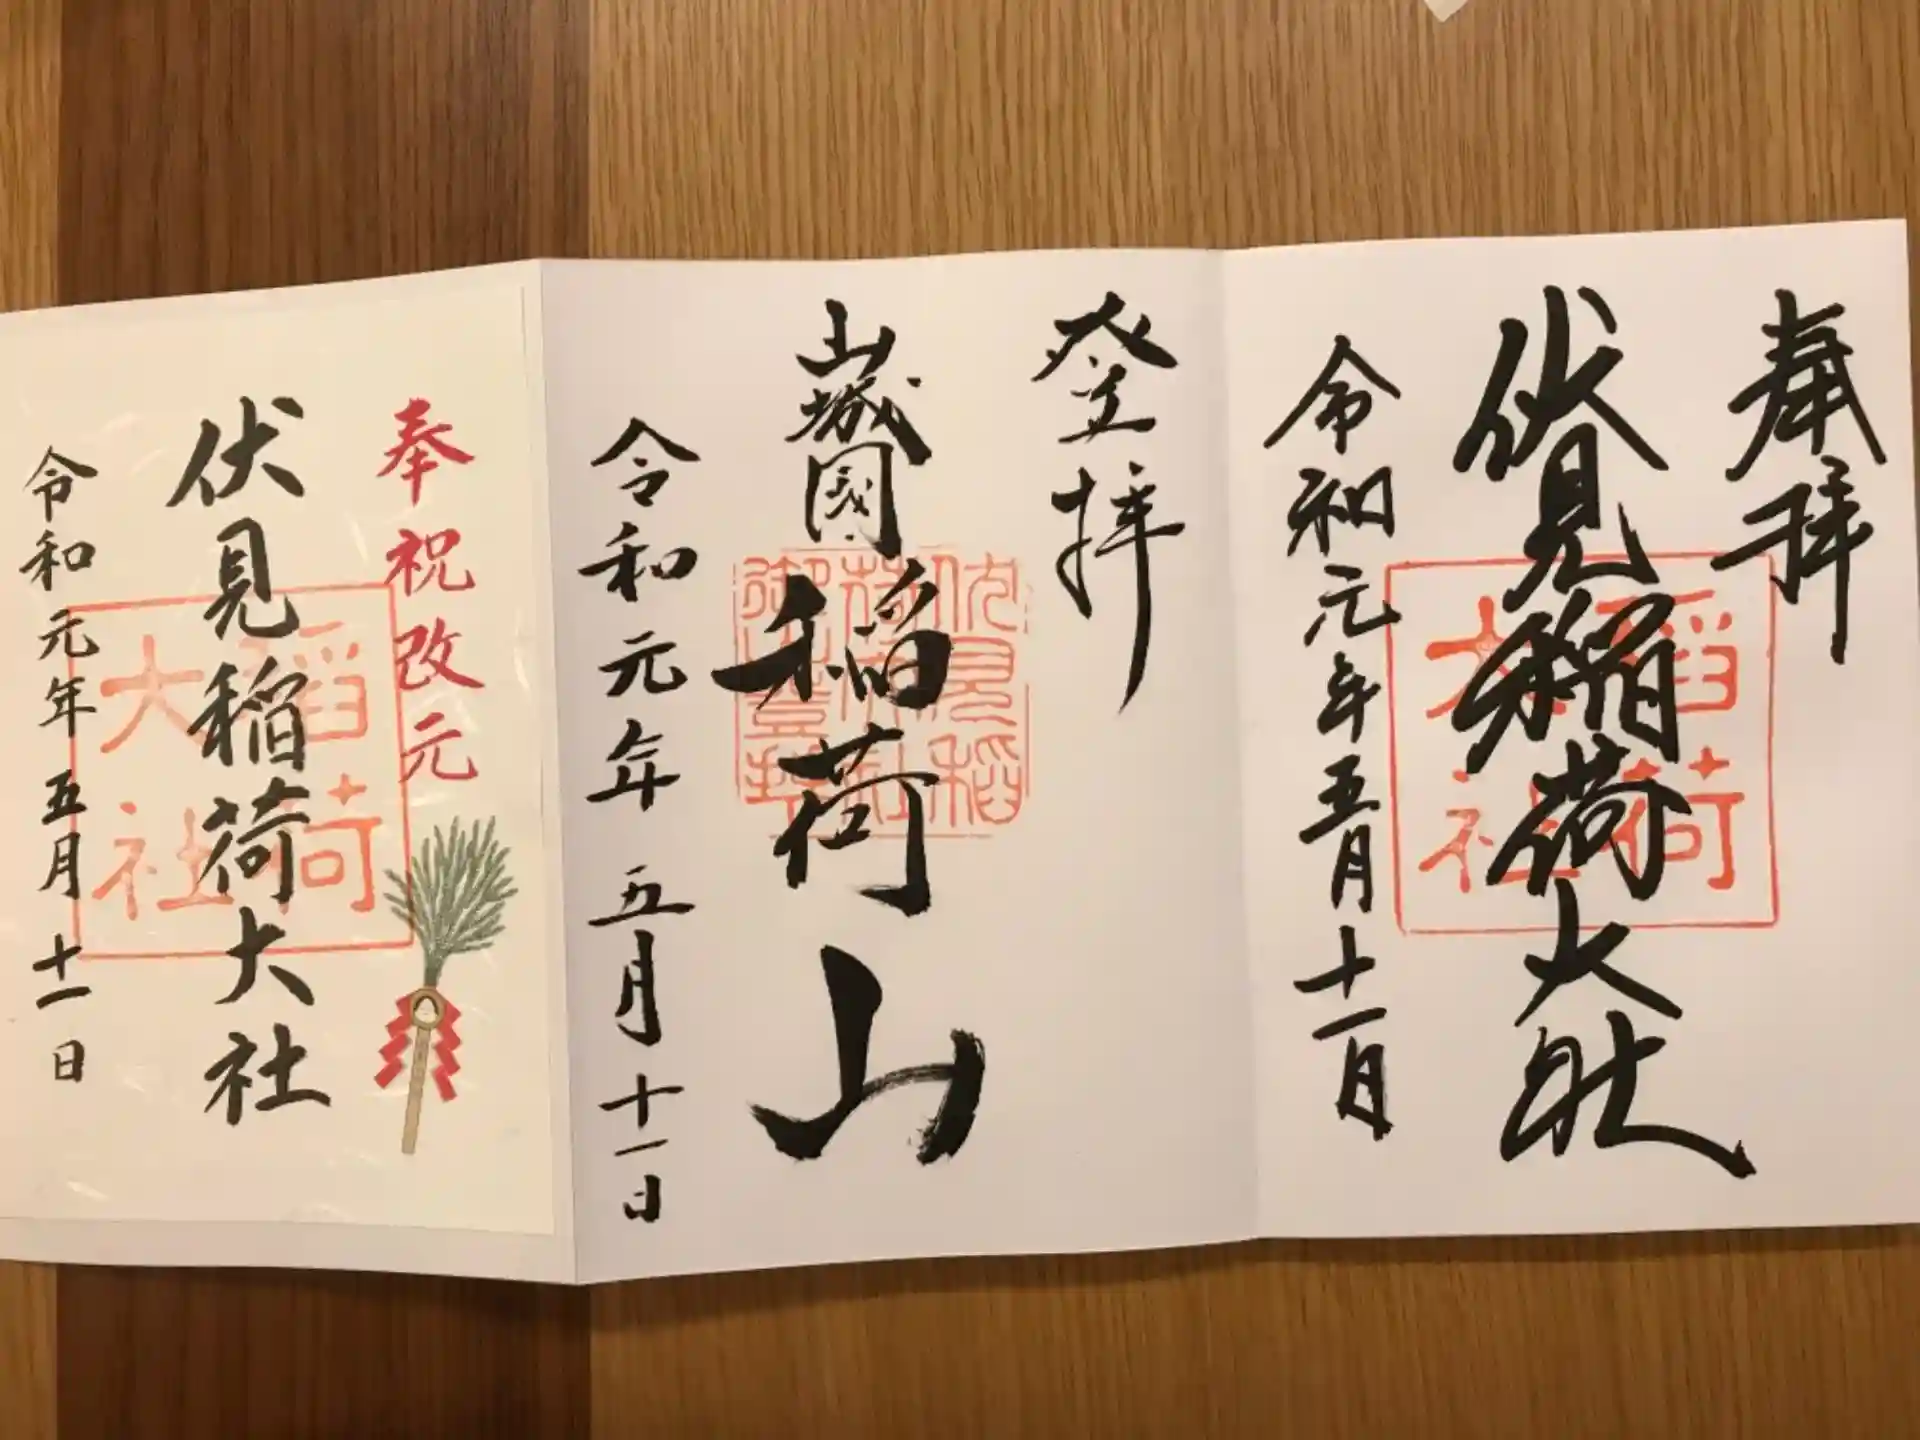 奉拝
伏見稲荷大社
令和元年五月十一日
稲荷
大社
登拝
山城国
稲荷山
令和元年五月十一日
伏見稲
荷大社
御登拝
奉祝改元
伏見稲荷大社
令和元年五月十一日
稲荷
大社